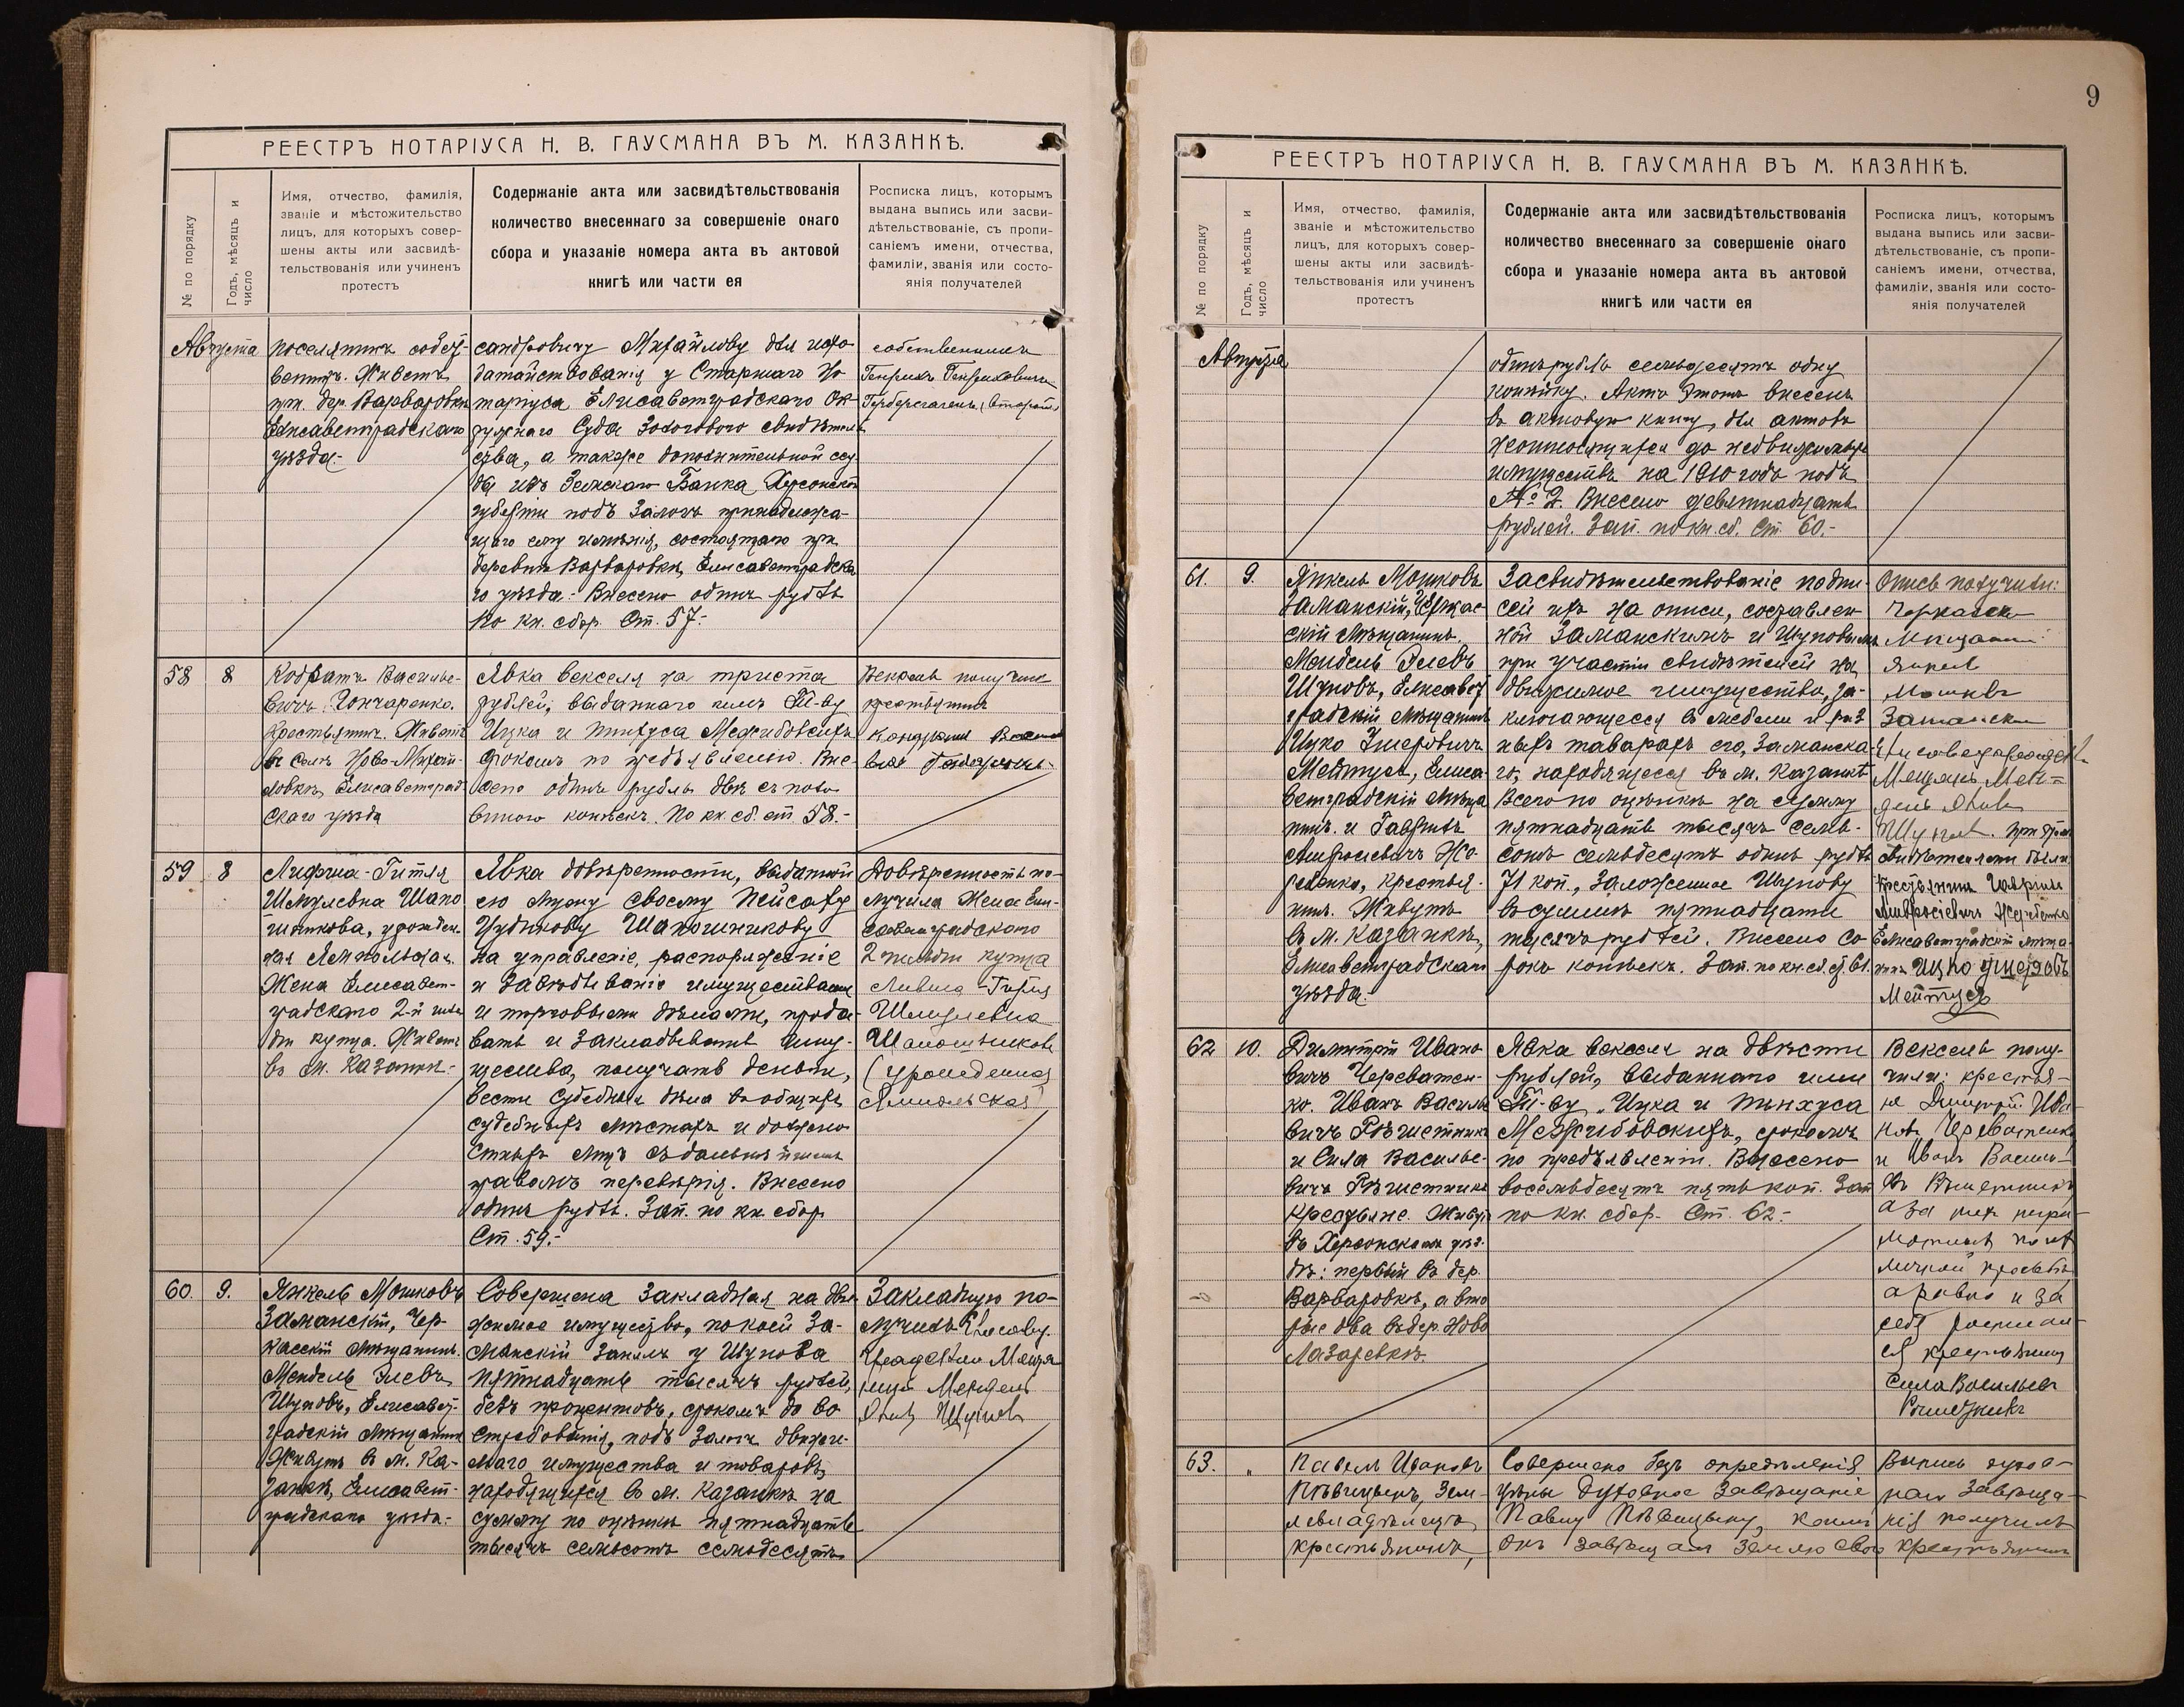 РЕЕСТРЪ НОТАРІУСА Н. В. ГАУСМАНА ВЪ М. КАЗАНКѢ.
№ по порядку
Годъ, мѣсяцъ и
число
Имя, отчество, фамилія,
званіе и мѣстожительство
лицъ, для которыхъ совер-
шены акты или засвидѣ-
тельствованія или учиненъ
протестъ
Содержаніе акта или засвидѣтельствованія
количество внесеннаго за совершеніе онаго
сбора и указаніе номера акта въ актовой
книгѣ или части ея
Росписка лицъ, которымъ
выдана выпись или засви-
дѣтельствованіе, съ пропи-
саніемъ имени, отчества,
фамиліи, званія или состо-
янія получателей
Августа
поселянинъ собст-
венникъ. Живетъ
при дер. Варваровкѣ
Елисаветградскаго
уѣзда.-
сандровичу Михайлову для исхо-
датайствованія у Старшаго Но-
таріуса Елисаветградскаго Ок-
ружнаго Суда Залогового свидѣтель-
ства, а также дополнительной ссу-
ды изъ Земскаго Банка Херсонской
губерніи подъ залогъ принадлежа-
щаго ему имѣнія, состоящаго при
деревнѣ Варваровкѣ, Елисаветградска-
го уѣзда.- Внесено одинъ рубль
По кн. сбор. Ст. 57.-
собственникъ
Генрихъ Генриховичъ
58
8
Кодратъ Василье-
вичъ Гончаренко.
Крестьянинъ. Живетъ
въ селѣ Ново-Михай-
ловкѣ, Елисаветград-
скаго уѣзда
Явка векселя на триста
рублей, выданнаго имъ Т-ву
Ицка и Пинхуса Межибовскихъ
срокомъ по предъявленію. Вне-
сено одинъ рубль двѣ съ поло-
виною копѣекъ. По кн. сб. ст. 58.-
Вексель получилъ
крестьянинъ
59
8
Лифша-Гитля
Шмулевна Шапо
шникова, урожден-
ная Ямпольская.
Жена Елисавет-
градскаго 2-й гиль
діи купца. Живетъ
въ м. Казанкѣ.-
Явка довѣренности, выданной
ею мужу своему Пейсаху
Иудкову Шапошникову
на управленіе, распоряженіе
и завѣдываніе имуществами
и торговыми дѣлами, прода-
вать и закладывать иму-
щества, получать деньги,
вести судебныя дѣла въ общихъ
судебныхъ мѣстахъ и должно
стныхъ лицъ съ дальнѣйшимъ
правомъ перевѣрія. Внесено
одинъ рубль. Зап. по кн. сбор
Ст. 59.-
Довѣренность по-
лучила Жена Ели-
саветградскаго
2 гильдіи купца
Шмулевна
Шапошникова
(урожденная
60
9.
Янкель Мошковъ
Заманскій, Чер-
касскій мѣщанинъ.
Мендель Элевъ
Шуповъ, Елисавет-
градскій мѣщанинъ
Живутъ въ м. Ка-
занкѣ, Елисавет-
градскаго уѣзда.-
Совершена закладная на дви-
жимое имущество, по коей За-
манскій занялъ у Шупова
пятнадцать тысячъ рублей,
безъ процентовъ, срокомъ до во
стребованія, подъ залогъ движи-
маго имущества и товаровъ,
находящихся въ м. Казанкѣ на
сумму по оцѣнкѣ пятнадцать
тысячъ семьсотъ семьдесятъ
Закладную по-
лучилъ Елисавет-
градскій Мѣща
нинъ Мендель
9
РЕЕСТРЪ НОТАРІУСА Н. В. ГАУСМАНА ВЪ М. КАЗАНКѢ.
№ по порядку
Годъ, мѣсяцъ и
число
Имя, отчество, фамилія,
званіе и мѣстожительство
лицъ, для которыхъ совер-
шены акты или засвидѣ-
тельствованія или учиненъ
протестъ
Содержаніе акта или засвидѣтельствованія
количество внесеннаго за совершеніе онаго
сбора и указаніе номера акта въ актовой
книгѣ или части ея
Росписка лицъ, которымъ
выдана выпись или засви-
дѣтельствованіе, съ пропи-
саніемъ имени, отчества,
фамиліи, званія или состо-
янія получателей
Августа
одинъ рубль семьдесятъ одну
копѣйку. Актъ этотъ внесенъ
въ актовую книгу, для актовъ
неотносящихся до недвижимыхъ
имуществъ на 1910 годъ подъ
№ 2. Внесено девятнадцать
рублей. Зап. по кн. сб. Ст. 60.-
61.
9.
Янкель Мошковъ
Заманскій, Черкас-
скій мѣщанинъ.
Мендель Элевъ
Шуповъ, Елисавет
градскій мѣщанинъ
Ицко Умеровичъ
Мейтусъ, Елиса-
ветградскій мѣща
нинъ. и Гавріилъ
Амвросіевичъ Же-
ребенко, крестья-
нинъ. Живутъ
въ м. Казанкѣ,
Елисаветградскаго
уѣзда.-
Засвидѣтельствованіе подпи-
сей ихъ на описи, составлен
ной Заманскимъ и Шуповымъ
при участіи свидѣтелей на
движимое имущество, за-
ключающееся въ мебели и раз
ныхъ товарахъ его, Заманска-
го, находящееся въ м. Казанкѣ
Всего по оцѣнкѣ на сумму
пятнадцать тысячъ семь-
сотъ семьдесятъ одинъ рубль
71 коп., заложенное Шупову
въ суммѣ пятнадцати
тысячъ рублей. Внесено со
рокъ копѣекъ. Зап. по кн. сб. ст. 61.
Опись получили:
мѣщанинъ
Янкель
Мошковъ
Заманскій
Елисаветградскій
Мѣщанинъ Мен-
дель
Шуповъ. При этомъ
свидѣтелями были:
Крестьянинъ Гавріилъ
Амвросіевичъ Жеребенко
Елисаветградскій мѣща-
нинъ Ицко Умеровъ
Мейтусъ
62
10.
Димитрій Ивано
вичъ Череватен-
ко. Иванъ Василье
вичъ Рѣшетникъ
и Сила Василье-
вичъ Рѣшетникъ
Крестьяне. Живутъ
въ Херсонскомъ уѣз-
дѣ: первый въ дер.
Варваровкѣ, а вто
рые два въ дер. Ново
Лазаревкѣ.
Явка векселя на двѣсти
рублей, выданнаго ими
Т-ву „Ицка и Пинхуса
Межибовскихъ, срокомъ
по предъявленіи. Внесено
восемьдесятъ пять коп. Зап
по кн. сбор. Ст. 62.-
Вексель полу-
чили: крестья-
не Димитрій Ива-
новъ Череватенко
и Иванъ Василь-
евъ Рѣшетникъ
а за нихъ негра-
мотныхъ по ихъ
личной просьбѣ
а равно и за
себя росписал-
ся крестьянинъ
Сила Васильевъ
Рѣшетникъ
63.
"
Павелъ Ивановъ
Пѣвицынъ, Зем-
левладѣлецъ,
крестьянинъ,
Совершено безъ опредѣленія
цѣны духовное завѣщаніе
Павлу Пѣвицыну, коимъ
онъ завѣщалъ землю свою
Выпись духов-
наго завѣща-
нія получилъ
крестьянинъ